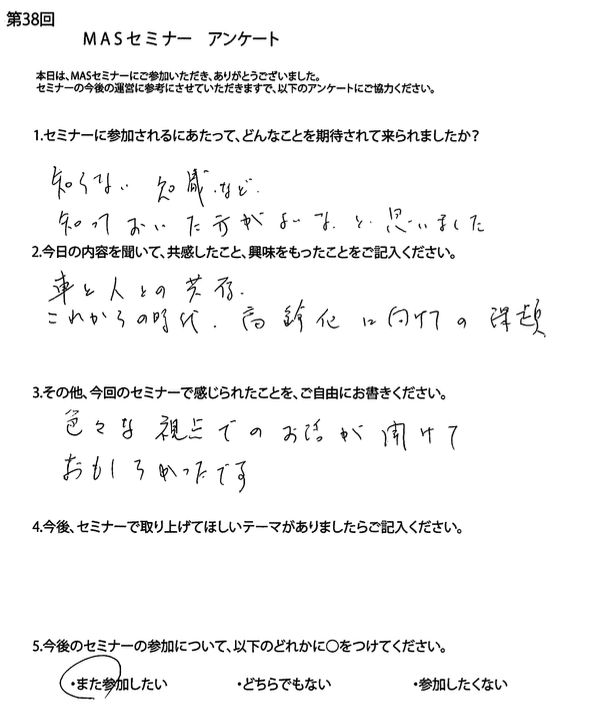 第38回
MASセミナー アンケート
本日は、MASセミナーにご参加いただき、ありがとうございました。
セミナーの今後の運営に参考にさせていただきますで、以下のアンケートにご協力ください。
1.セミナーに参加されるにあたって、どんなことを期待されて来られましたか？
知らない 知識など、
知っておいた方がよいな、と思いました
2.今日の内容を聞いて、共感したこと、興味をもったことをご記入ください。
車と人との共存、
これからの時代、高齢化に向けての課題
3.その他、今回のセミナーで感じられたことを、ご自由にお書きください。
色々な視点でのお話が聞けて
おもしろかったです
4.今後、セミナーで取り上げてほしいテーマがありましたらご記入ください。
5.今後のセミナーの参加について、以下のどれかに〇をつけてください。
・また参加したい ・どちらでもない ・参加したくない